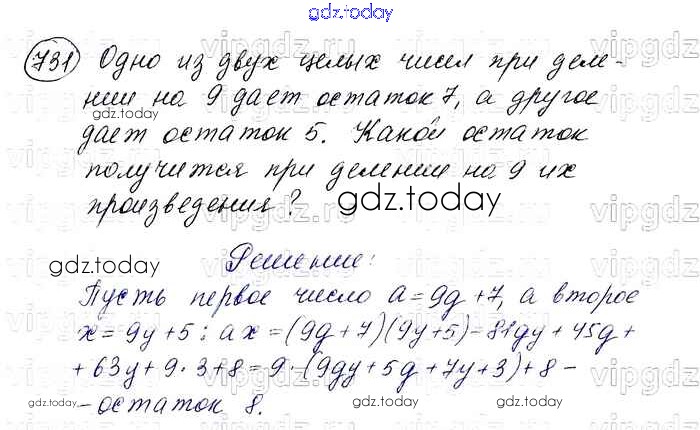 gdz.today
731 Одно из двух целых чисел при деле-
нии на 9 дает остаток 7, а другое
дает остаток 5. Какой остаток
получится при делении на 9 их
произведения?
gdz.today
gdz.today
gdz.today
Решение:
Пусть первое число a=9g+7, а второе
x=9y+5; ax=(9g+7)(9y+5)=81gy+45g+
+63y+9·3+8=9·(9gy+5g+7y+3)+8-
-остаток 8.
gdz.today
gdz.today